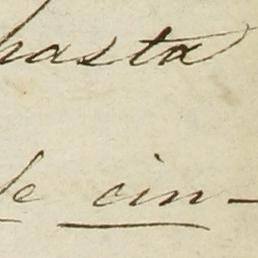 hasta
de cin-